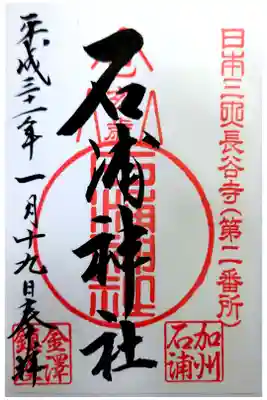 日本三所長谷寺(第二番所)
石浦神社
平成三十一年一月十九日奉拝
加州
石浦
金澤